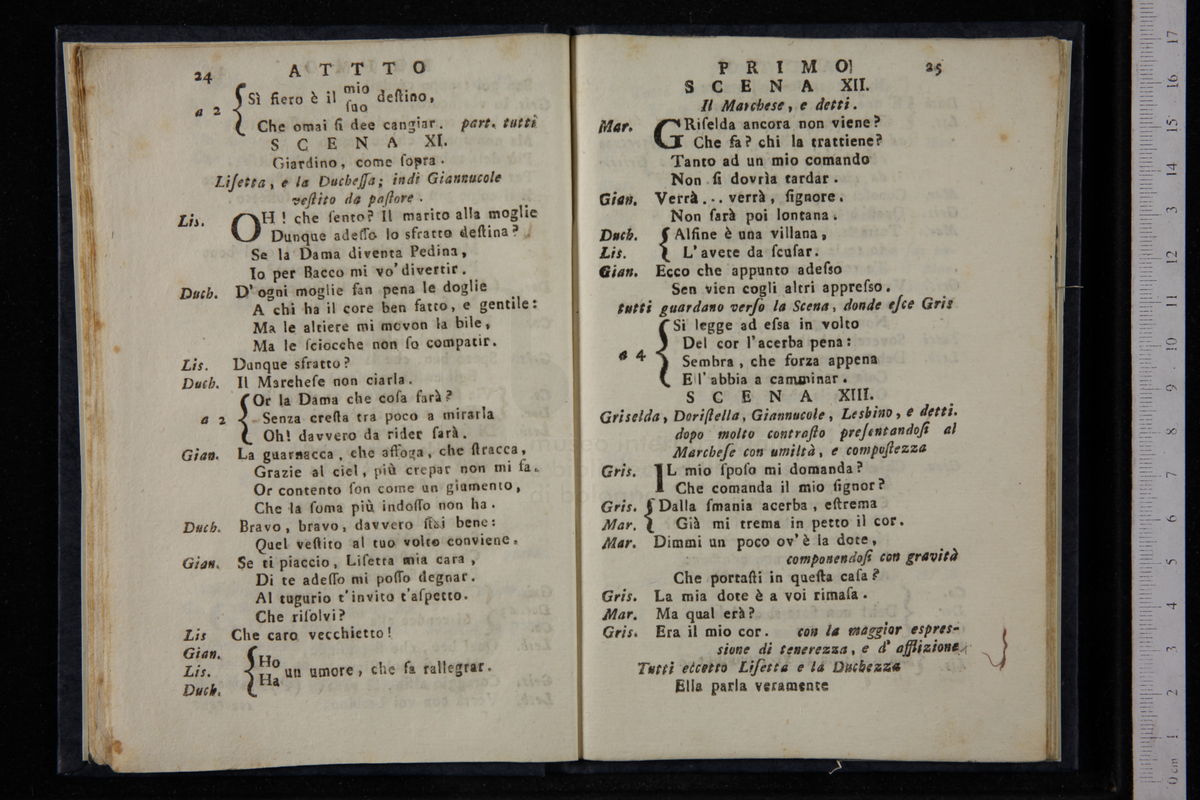 24
A T T T O
a 2 { Sì fiero è il mio
ſuo deſtino,
Che omai ſi dee cangiar. part. tutti
S C E N A XI.
Giardino, come ſopra.
Liſetta, e la Ducheſſa; indi Giannucole
veſtito da paſtore.
Lis. OH! che ſento? Il marito alla moglie
Dunque adeſſo lo sfratto deſtina?
Se la Dama diventa Pedina,
Io per Bacco mi vo' divertir.
Duch. D' ogni moglie fan pena le doglie
A chi ha il core ben fatto, e gentile:
Ma le altiere mi movon la bile,
Ma le ſciocche non ſo compatir.
Lis. Dunque sfratto?
Duch. Il Marcheſe non ciarla.
Or la Dama che coſa farà?
a 2 { Senza creſta tra poco a mirarla
Oh! davvero da rider farà.
Gian. La guarnacca, che affoga, che ſtracca,
Grazie al ciel, più crepar non mi fa.
Or contento ſon come un giumento,
Che la ſoma più indoſſo non ha.
Duch. Bravo, bravo, davvero ſtai bene:
Quel veſtito al tuo volto conviene.
Gian. Se ti piaccio, Liſetta mia cara,
Di te adeſſo mi poſſo degnar.
Al tugurio t'invito t'aſpetto.
Che riſolvi?
Lis Che caro vecchietto!
Gian.
Lis. { Ho
Ha un umore, che fa rallegrar.
Duch.
P R I M O
25
S C E N A XII.
Il Marchese, e detti.
Mar. GRiſelda ancora non viene?
Che fa? chi la trattiene?
Tanto ad un mio comando
Non ſi dovrìa tardar.
Gian. Verrà... verrà, ſignore.
Non ſarà poi lontana.
Duch. { Alfine è una villana,
Lis. { L' avete da ſcuſar.
Gian. Ecco che appunto adeſso
Sen vien cogli altri appreſso.
tutti guardano verſo la Scena, donde eſce Gris
Si legge ad eſsa in volto
Del cor l'acerba pena:
a 4 { Sembra, che forza appena
Ell' abbia a camminar.
S C E N A XIII.
Griselda, Doriſtella, Giannucole, Lesbino, e detti.
dopo molto contraſto preſentandoſi al
Marcheſe con umiltà, e compoſtezza
Gris. IL mio ſpoſo mi domanda?
Che comanda il mio ſignor?
Gris. { Dalla ſmania acerba, eſtrema
Mar. { Già mi trema in petto il cor.
Mar. Dimmi un poco ov' è la dote,
componendoſi con gravità
Che portaſti in queſta caſa?
Gris. La mia dote è a voi rimaſa.
Mar. Ma qual erà?
Gris. Era il mio cor. con la maggior espres-
sione di tenerezza, e d' afflizione
Tutti eccetto Liſetta e la Duchezza
Ella parla veramente